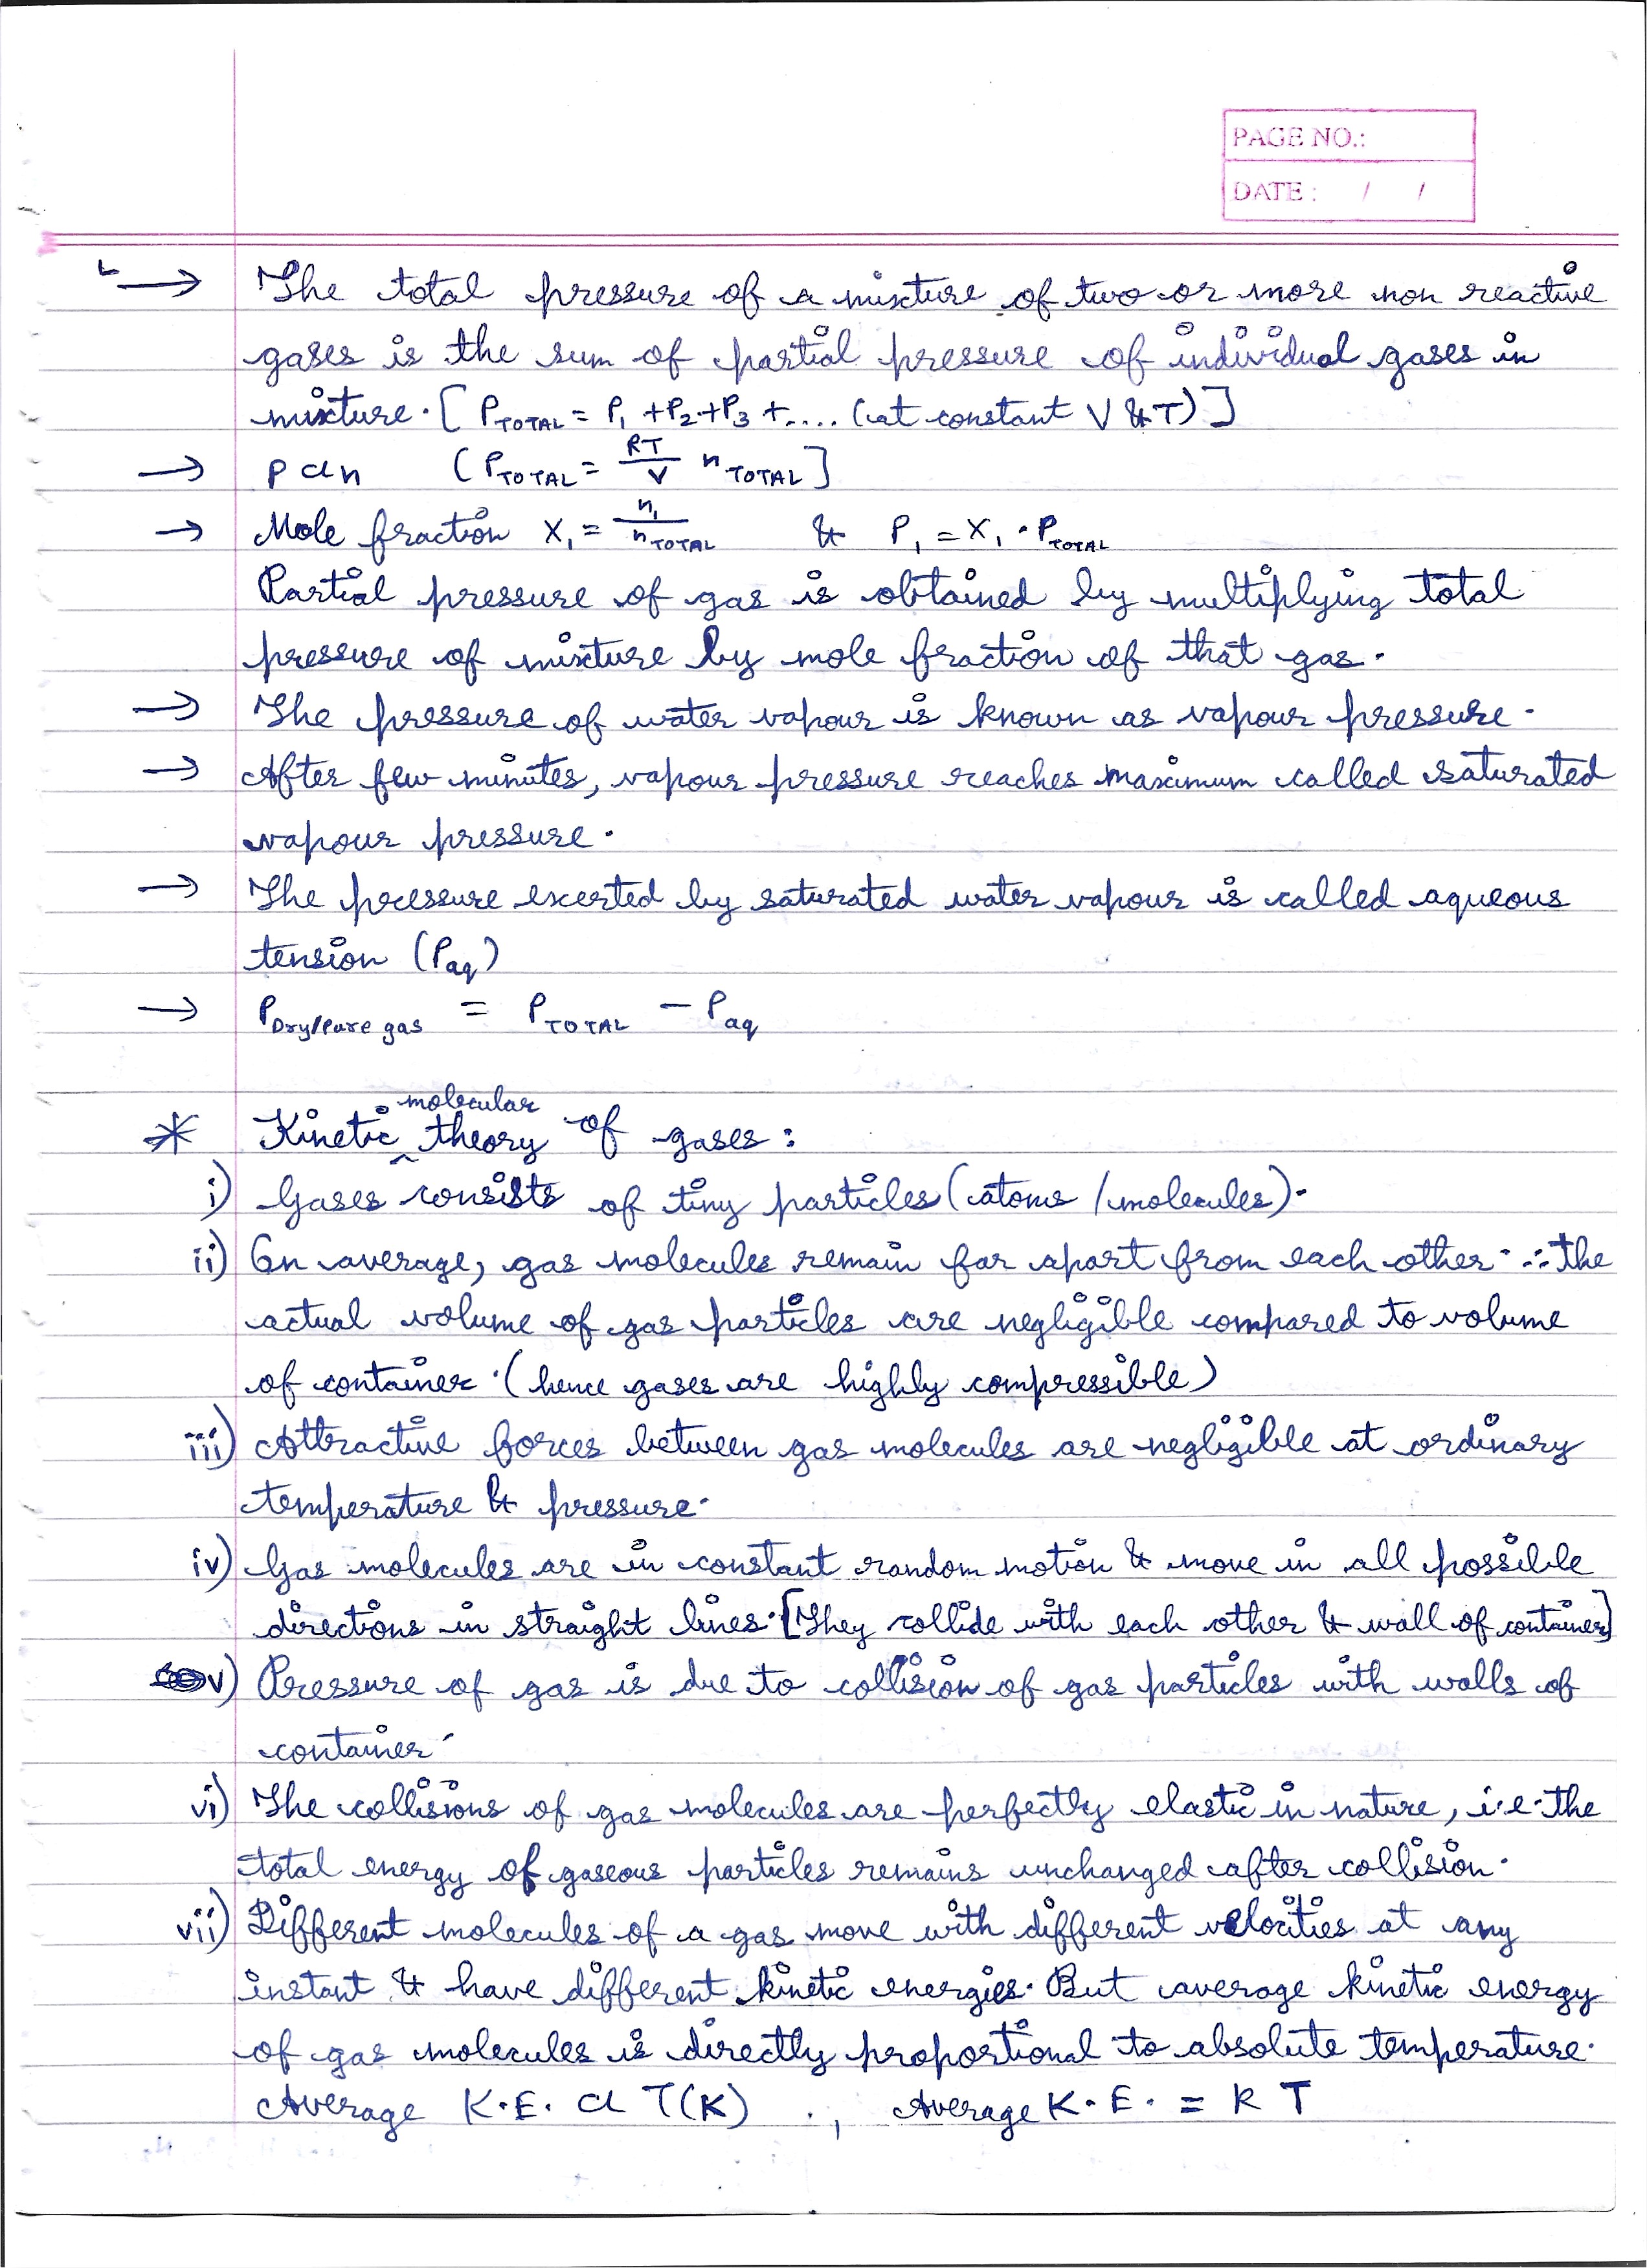 PAGE NO.:
DATE : / /
↳→ The total pressure of a mixture of two or more non reactive
gases is the sum of partial pressure of individual gases in
mixture. [ P_TOTAL = P₁ + P₂ + P₃ + .... (at constant V & T) ]
→ P α n ( P_TOTAL = RT/V n_TOTAL ]
→ Mole fraction X₁ = n₁/n_TOTAL & P₁ = X₁ . P_TOTAL
Partial pressure of gas is obtained by multiplying total
pressure of mixture by mole fraction of that gas.
→ The pressure of water vapour is known as vapour pressure.
→ After few minutes, vapour pressure reaches maximum called saturated
vapour pressure.
→ The pressure exerted by saturated water vapour is called aqueous
tension (P_aq)
→ P_Dry/Pure gas = P_TOTAL - P_aq
* Kinetic ^molecular theory of gases :
i) Gases consists of tiny particles (atoms / molecules).
ii) On average, gas molecules remain far apart from each other. ∴ the
actual volume of gas particles are negligible compared to volume
of container. (hence gases are highly compressible)
iii) Attractive forces between gas molecules are negligible at ordinary
temperature & pressure.
iv) Gas molecules are in constant random motion & move in all possible
directions in straight lines. [They collide with each other & wall of container]
v) Pressure of gas is due to collision of gas particles with walls of
container.
vi) The collisions of gas molecules are perfectly elastic in nature, i.e. the
total energy of gaseous particles remains unchanged after collision.
vii) Different molecules of a gas move with different velocities at any
instant & have different kinetic energies. But average kinetic energy
of gas molecules is directly proportional to absolute temperature.
Average K.E. α T(K) , Average K.E. = K T